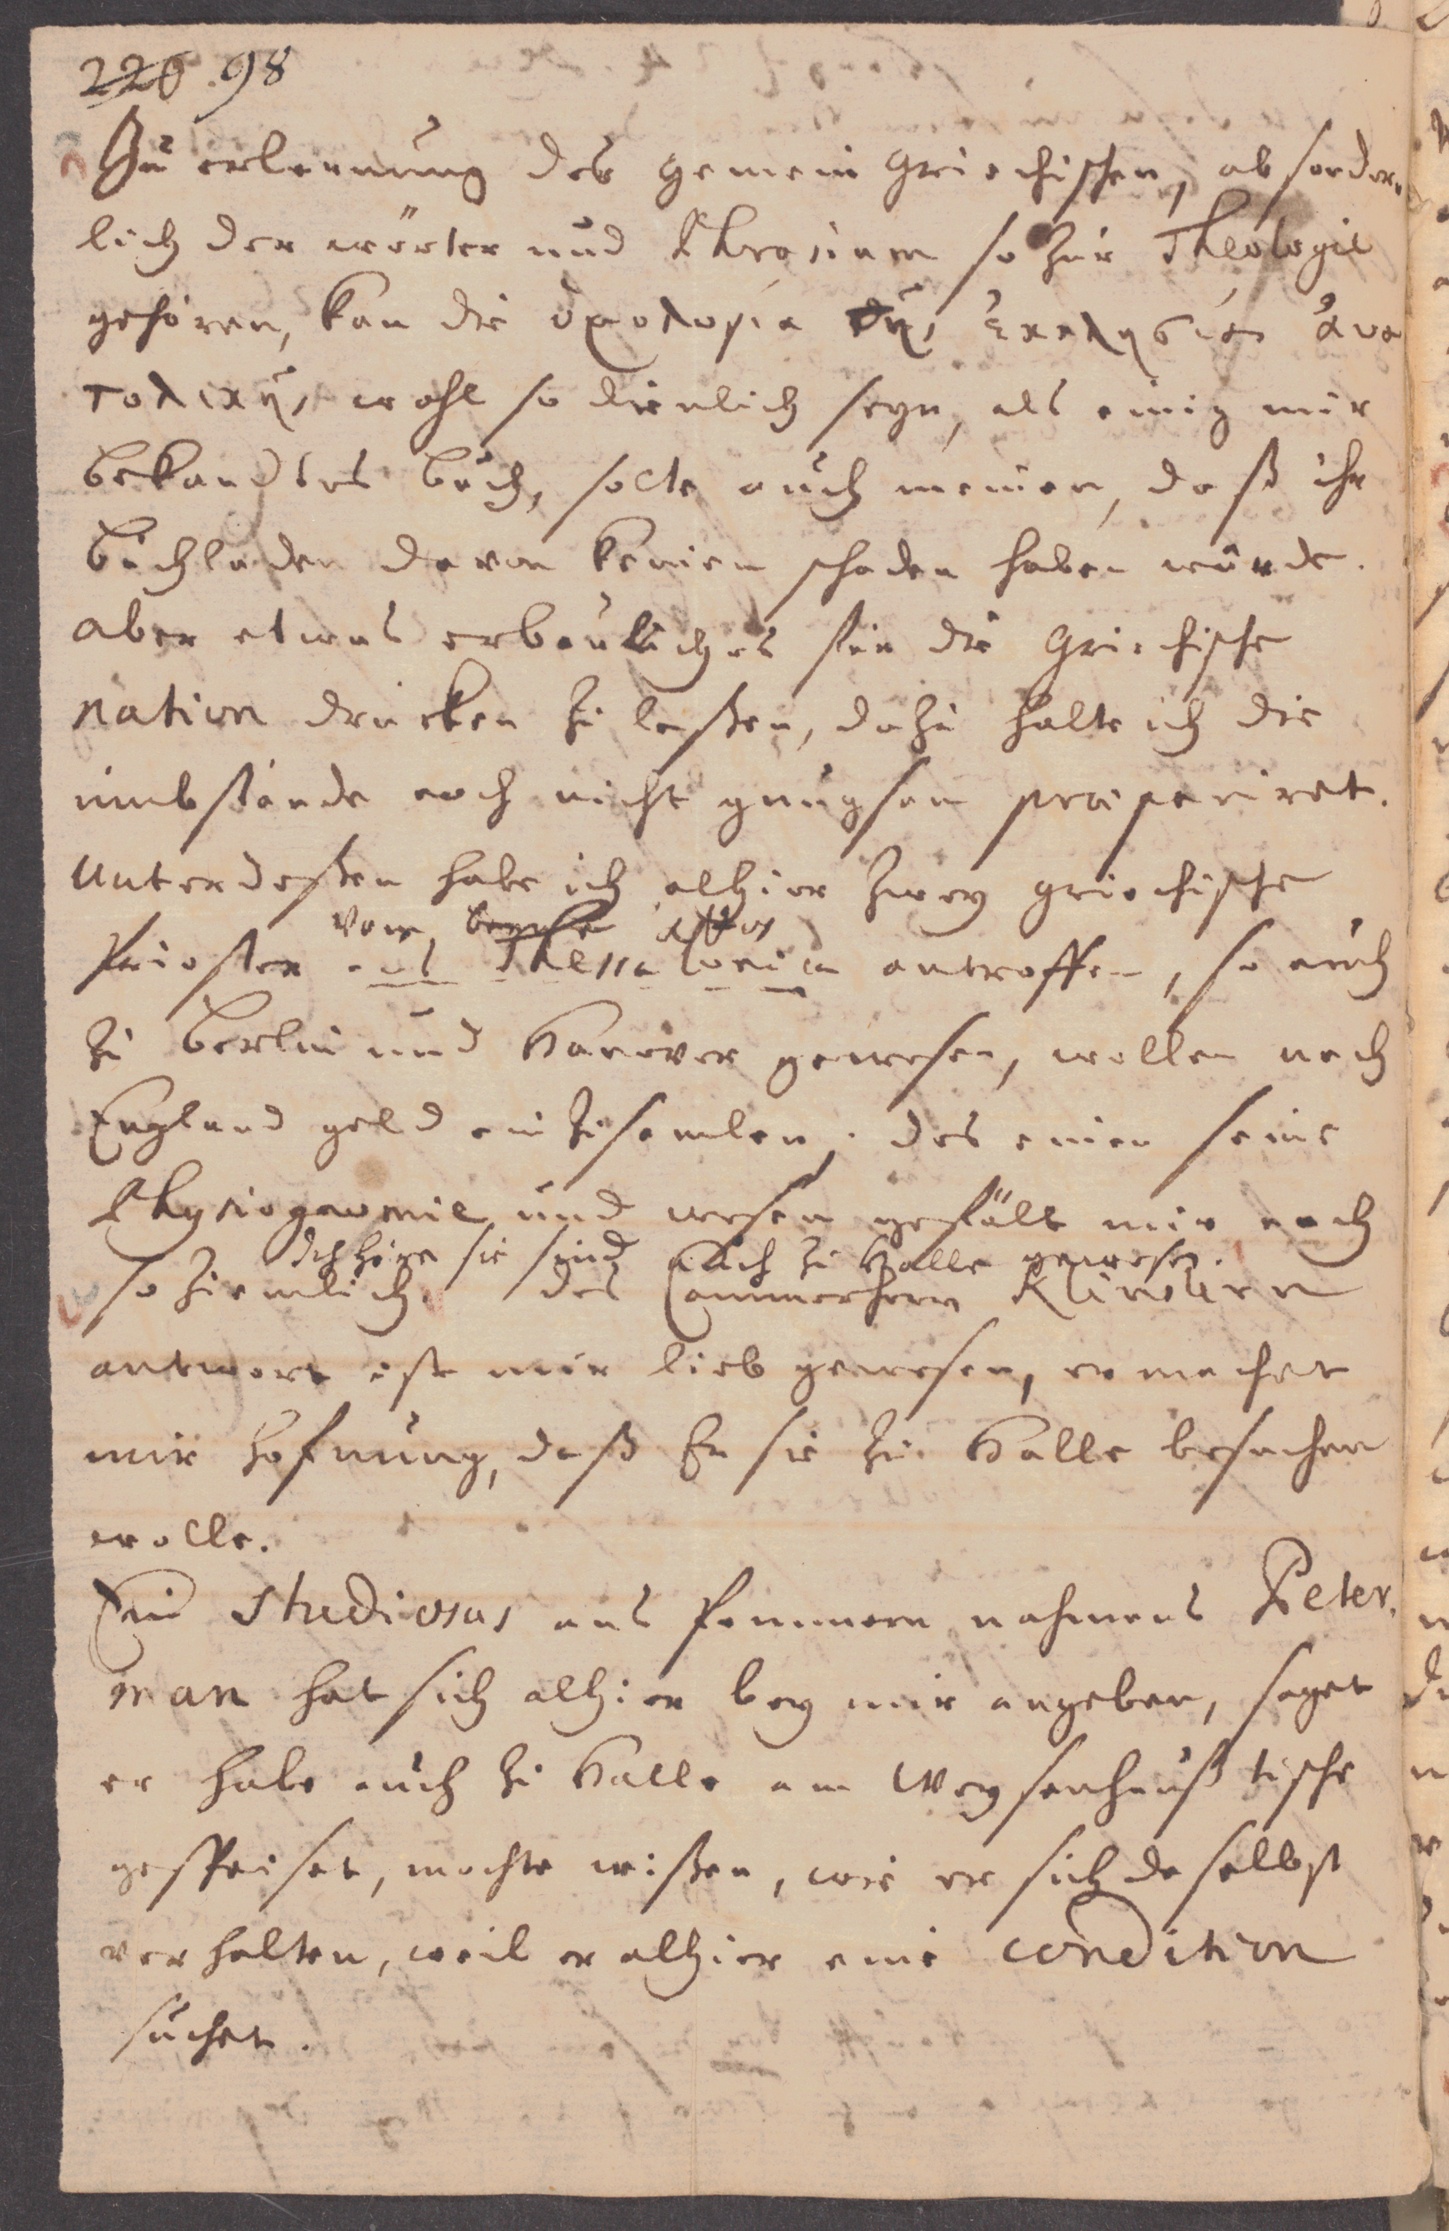 226. 98
Zu erlernung des gemein Griechischen, absonder-
lich der wörter und Phrasium so zur Theologie
gehören, kan die ὁμολογία τῆς ἐκκλησίας ἀνα
τολικῆς wohl so dienlich seyn, als einig mir
bekandtes buch, solte auch meinen, daß ihr
buchladen davon keinen schaden haben würde.
aber etwas erbauliches für die Griechische
nation drucken zu laßen, dazu halte ich die
umbstände noch nicht gnugsam præpariret.
Unterdeßen habe ich alhier zwey griechische
vom berge Athos
Priester aus Thessalonica antroffen, so auch
zu Berlin und Hanover gewesen, wollen nach
England geld einzusamlen. des einen seine
Physiognomie und wesen gefält mir noch
Ich höre sie sind auch zu Halle gewesen.
so ziemlich. des Cammerherrn
antwort ist mir lieb gewesen, er machet
mir hofnung, daß Er sie zu Halle besuchen
wolle.
Ein Studiosus aus Pommern nahmens Peter-
man hat sich alhier bey mir angeben, saget
er habe auch zu Halle am Waysenhauß tische
gespeiset, mochte wißen, wie er sich daselbst
verhalten, weil er alhier eine condition
suchet.